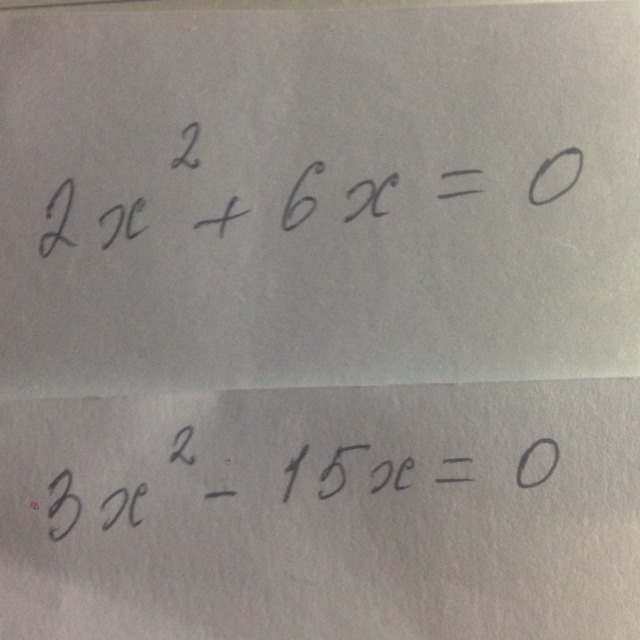 2x² + 6x = 0
3x² - 15x = 0